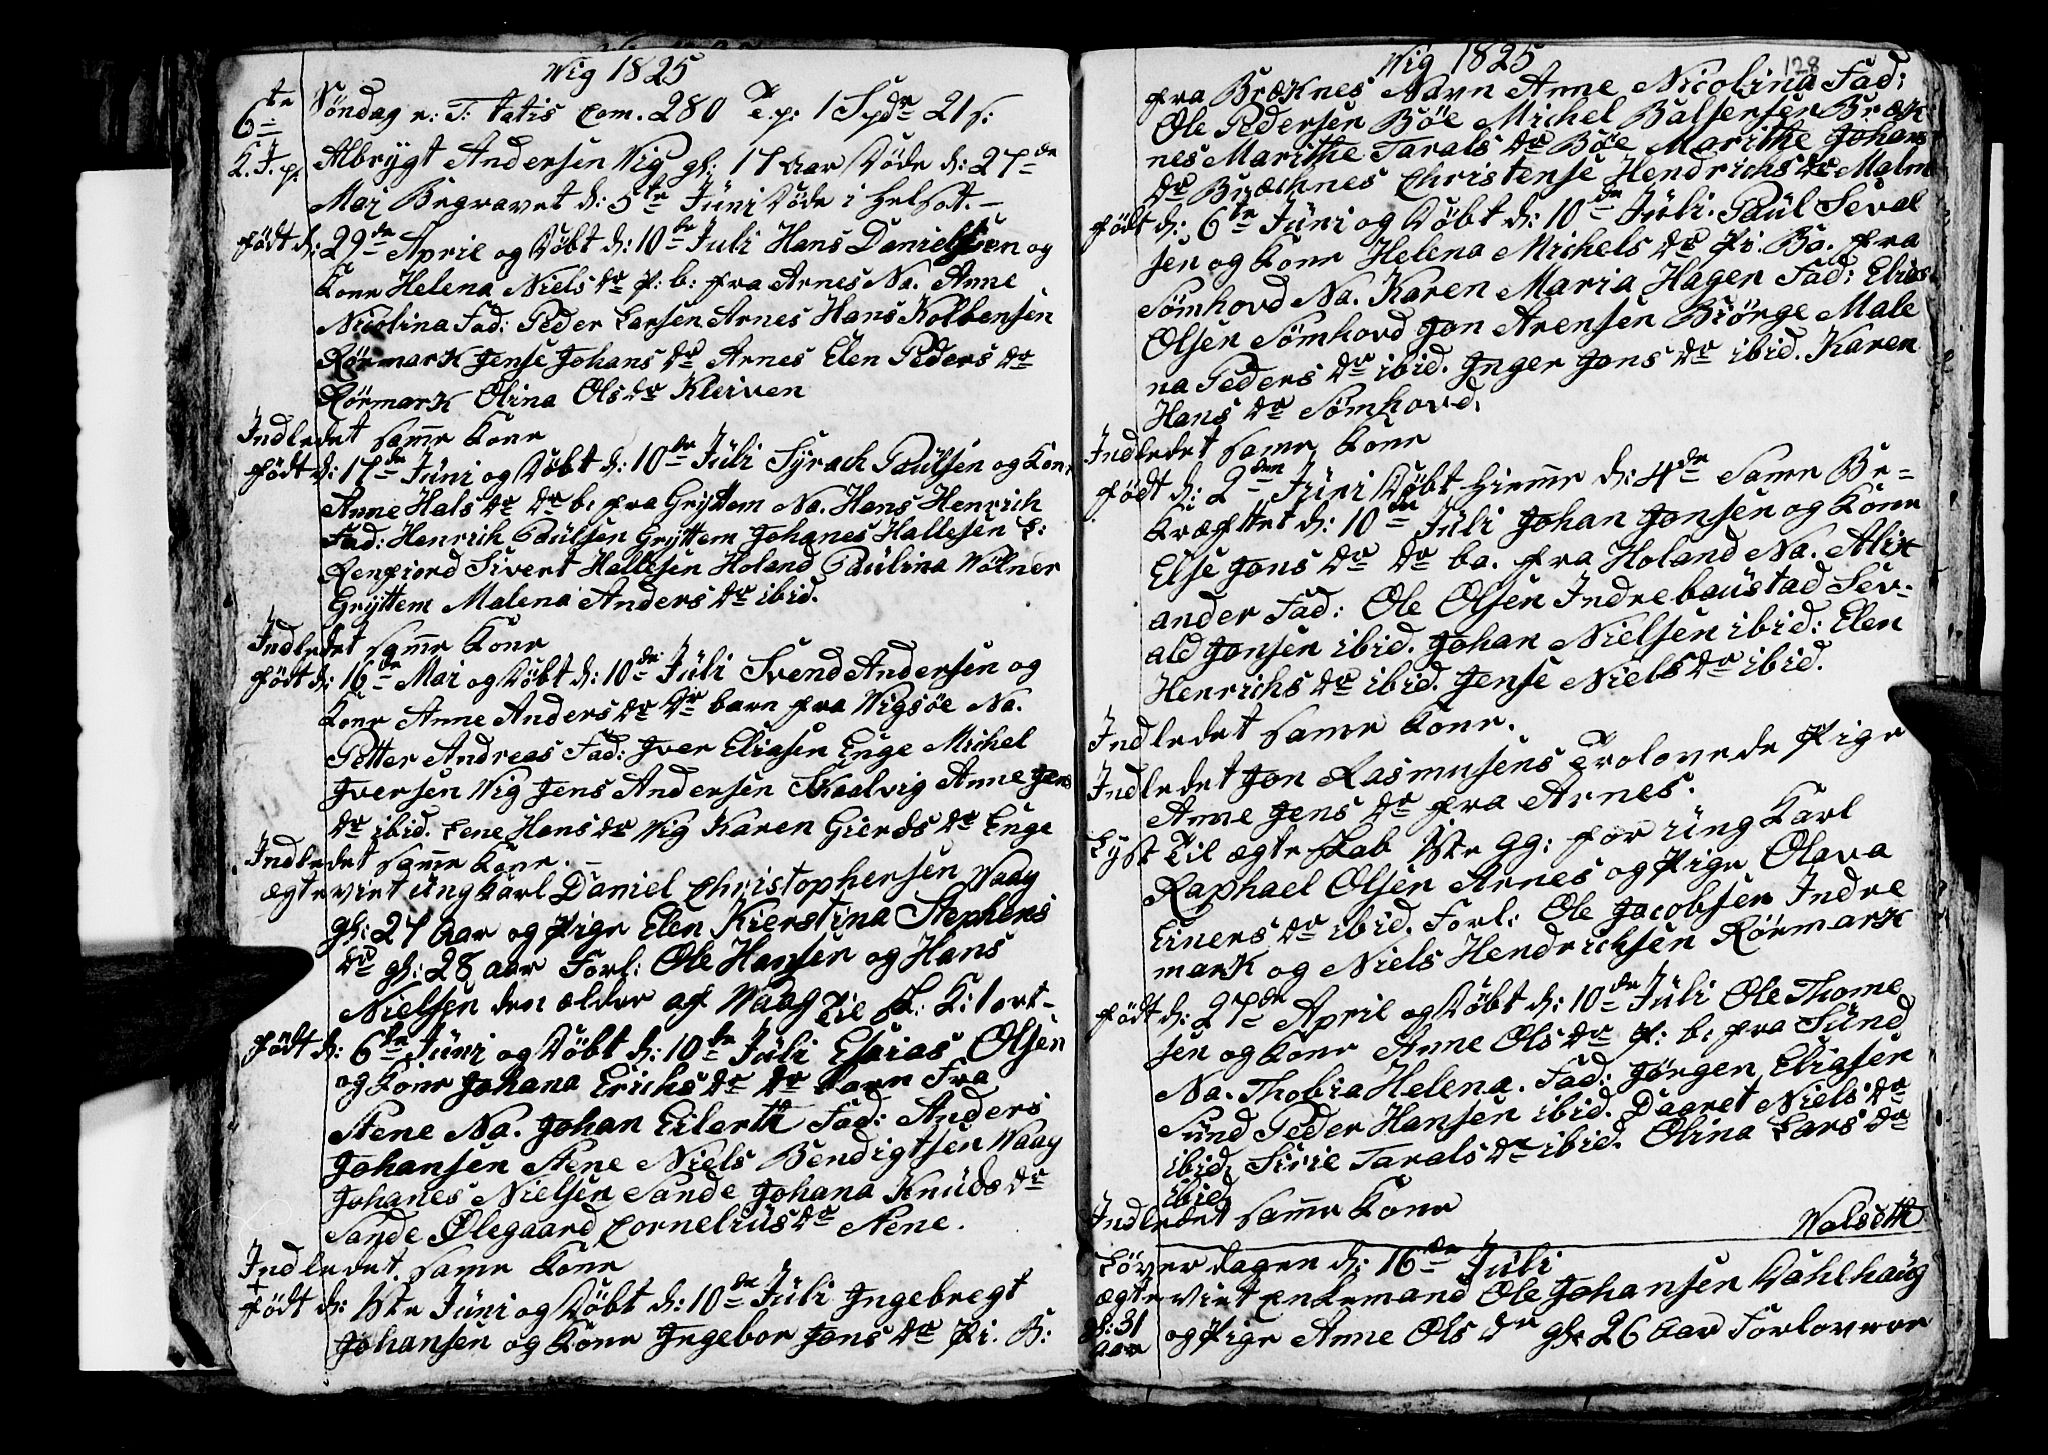 Wig 1825
6te Søndag e: T: tatis Com. 280 T.p: 1 Spdr 21 s:
K. T. p. Albrygt Andersen Wig gl: 17 Aar Døde d: 27de
Mai Begravet d: 5te Juni Døde i Helsot.
født d: 29de April og Døbt d: 10de Juli Hans Danielsen og
Kone Helena Niels dr P: b: fra Arnes Na. Anne
Nicolina Fad: Peder Larsen Arnes Hans Kolbensen
Rørmark Jense Johans dr Arnes Elen Peders dr
Rørmark Olina Ols dr Kleiven
Indledet samme Kone
født d: 17de Juni og Døbt d: 10de Juli Syrach Paulsen og Kone
Anne Hals dr dr b: fra Gryttem Na. Hans Henrich
Fad: Henrich Paulsen Gryttem Johanes Hallesen L:
Renfiord Sivert Hallesen Holand Paulina Wølner
Gryttem Malena Anders dr ibid.
Indledet samme Kone
født d: 16de Mai og Døbt d: 10de Juli Svend Andersen og
Kone Anne Anders dr Dr barn fra Wigsøe Na.
Petter Andreas Fad: Iver Eliasen Enge Michel
Iversen Wig Jens Andersen Skaalvig Anne Jens
dr ibid. Lene Hans dr Wig Karen Gierds dr Enge
Indledet samme Kone.
ægteviet ung Karl Daniel Christophersen Waag
gl: 27 Aar og Pige Elen Kierstina Stephens
dr gl: 28 aar Forl: Ole Hansen og Hans
Nielsen den ælder af Waag til sk. K: 1 ort
født d: 6te Juni og Døbt d: 10de Juli Esaias Olsen
og Kone Johana Erichs dr dr barn fra
Stene Na. Johan Eilerth Fad: Anders
Johansen Stene Niels Bendigtsen Waag
Johanes Nielsen Sande Johana Knuds dr
Sande Olegaard Cornelius dr Stene.
Indledet same Kone
født d: 1ste Juni og Døbt d: 10de Juli Ingebregt
Johansen og Kone Ingebor Jons dr Pi. B:
Wig 1825
128
fra Bræknes Navn Anne Nicolina Fad:
Ole Pedersen Bøe Michel Balsersen Bræk
nes Marithe Tarals dr Bøe Marithe Johans
dr Bræchnes Christense Hendrichs dr Malm
født d: 6te Juni og Døbt d: 10de Juli. Paul Seval
sen og Kone Helena Michels dr Pi. Ba. fra
Sømhovd Na. Karen Maria Hagen Fad: Elias
Olsen Sømhovd Jon Arensen Biørge Male
na Peders dr ibid. Inger Jons dr ibid. Karen
Hans dr Sømhovd.
Indledet same Kone
født d: 2den Juni Døbt hiemme d: 4de Same Be-
kræfttet d: 10de Juli Johan Jonsen og Kone
Else Jons dr dr ba. fra Holand Na. Alix
ander Fad: Ole Olsen Indrebaustad Sev-
ald Jonsen ibid. Johan Nielsen ibid: Elen
Henrichs dr ibid. Jense Niels dr ibid.
Indledet same Kone.
Indledet Jon Rasmusens Trolovede Pige
Anne Jens dr fra Arnes.
Lyst til ægteskab 1ste gg: for ung Karl
Raphael Olsen Arnes og Pige Olava
Einers dr ibid. Forl: Ole Jacobsen Indre
mark og Niels Hendrichsen Rørmark
født d: 27de April og Døbt d: 10de Juli Ole Thome
sen og Kone Anne Ols dr P: b: fra Sund
Na. Thobia Helena. Fad: Jørgen Eliasen
Sund Peder Hansen ibid. Daaret Niels dr
ibid. Sirie Tarals dr ibid. Olina Lars dr
ibid
Indledet samme Kone
Walseth
Løverdagen d: 16de Juli
ægteviet Enkemand Ole Johansen Dahlhaug
gl: 31 aar og Pige Anne Ols dr gl: 26 Aar Forlovere